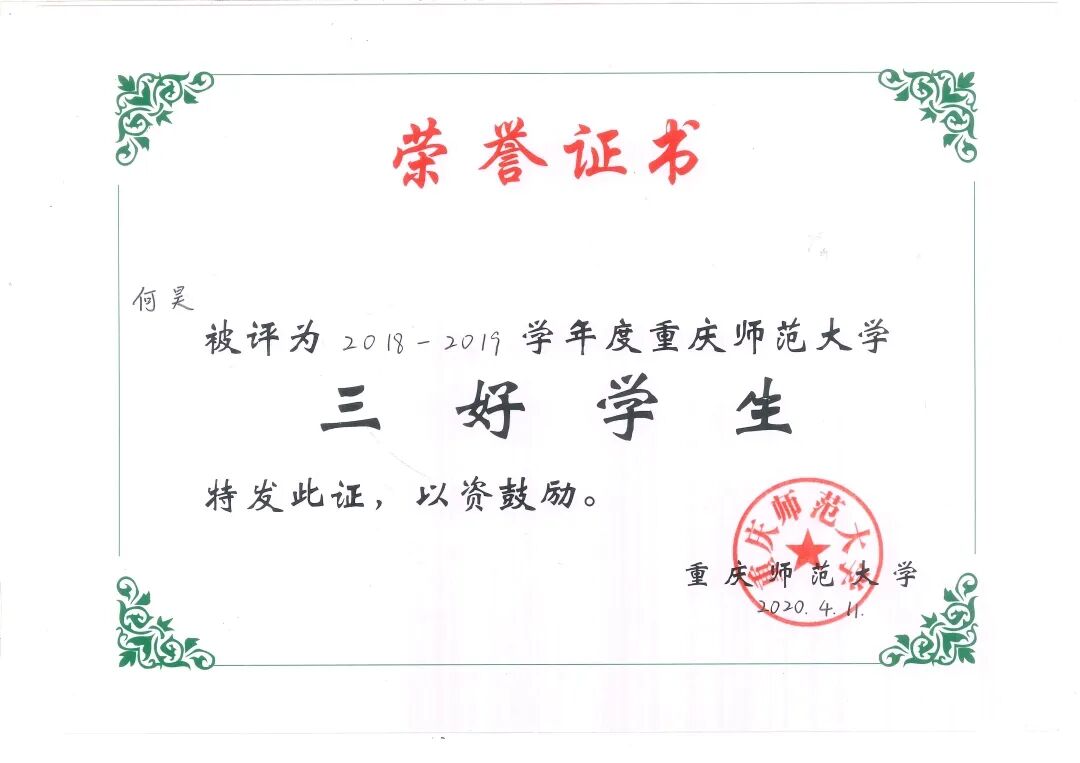 荣誉证书
何昊
被评为2018-2019学年度重庆师范大学
三好学生
特发此证，以资鼓励。
重庆师范大学
重庆师范大学
2020.4.11.